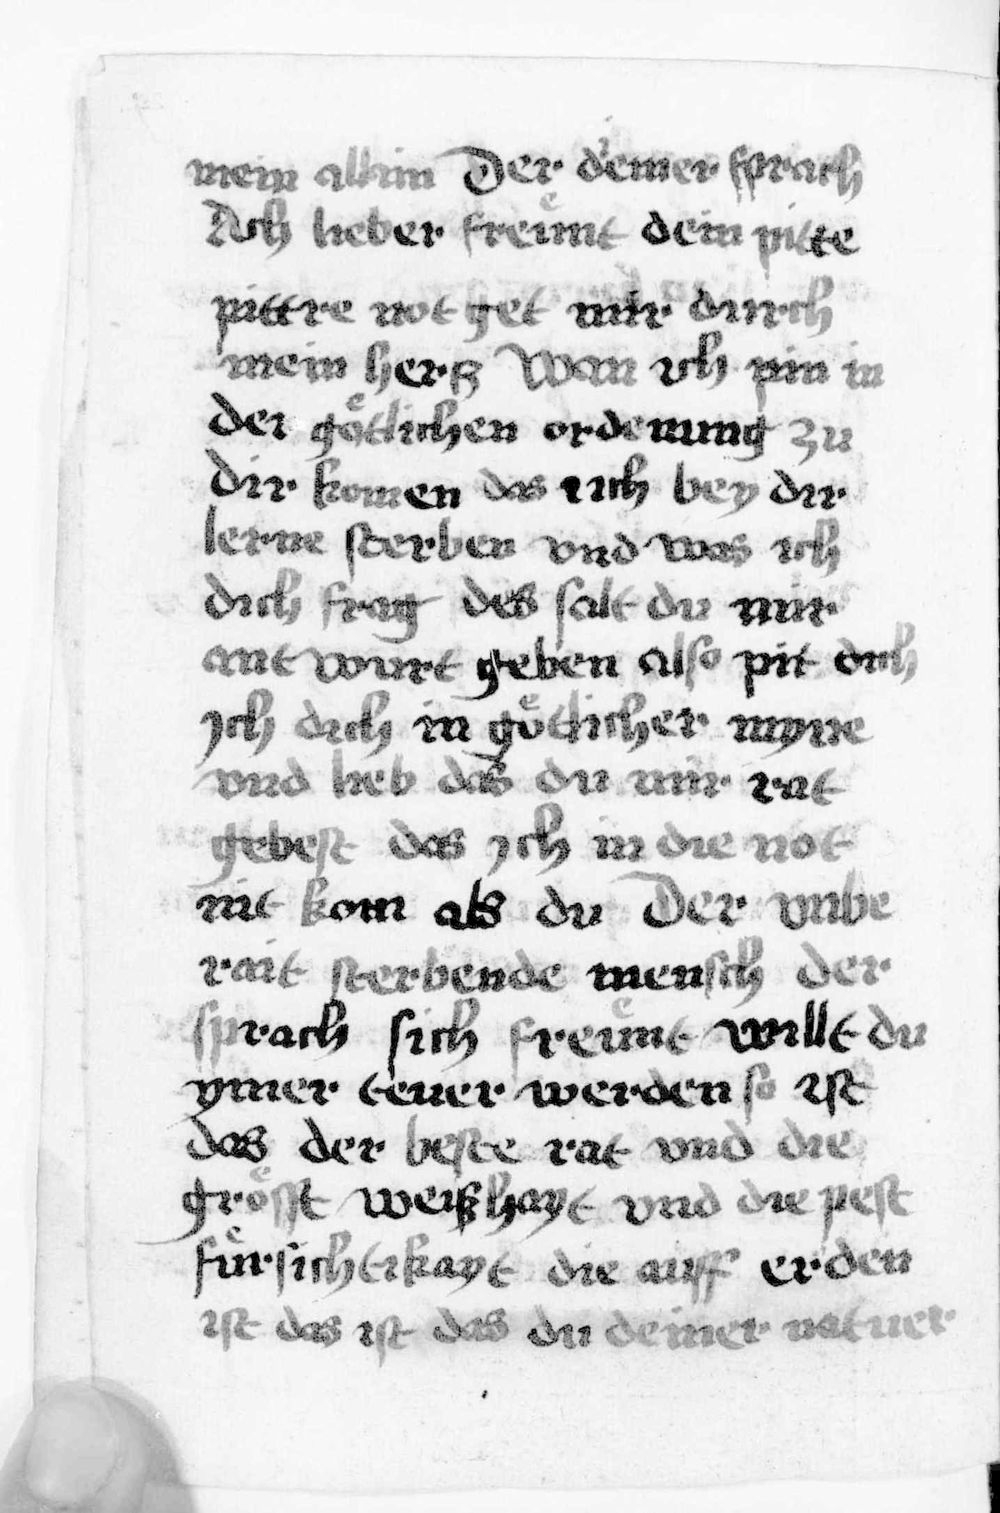 mein allain Der diener sprach
Ach lieber freuͤnt dein pitte
pittre not get mir durch
mein hercz Wan ich pin in
der goͤtlichen ordenung zu
dir komen das ich bey dir
lerne sterben vnd was ich
dich frag des salt du mir
ant wurt geben also pit dich
Ich dich in goͤtlicher myne
vnd lieb das du mir rat
gebest das Ich in die not
nit kom als du Der vnbe
rait sterbende mensch der
sprach sich freuͤnt willt du
ymer teuer werden so ist
das der beste rat vnd die
groͤsst weißhayt vnd die pest
fuͤrsichtikayt die auff erden
ist das ist das du deiner natuer